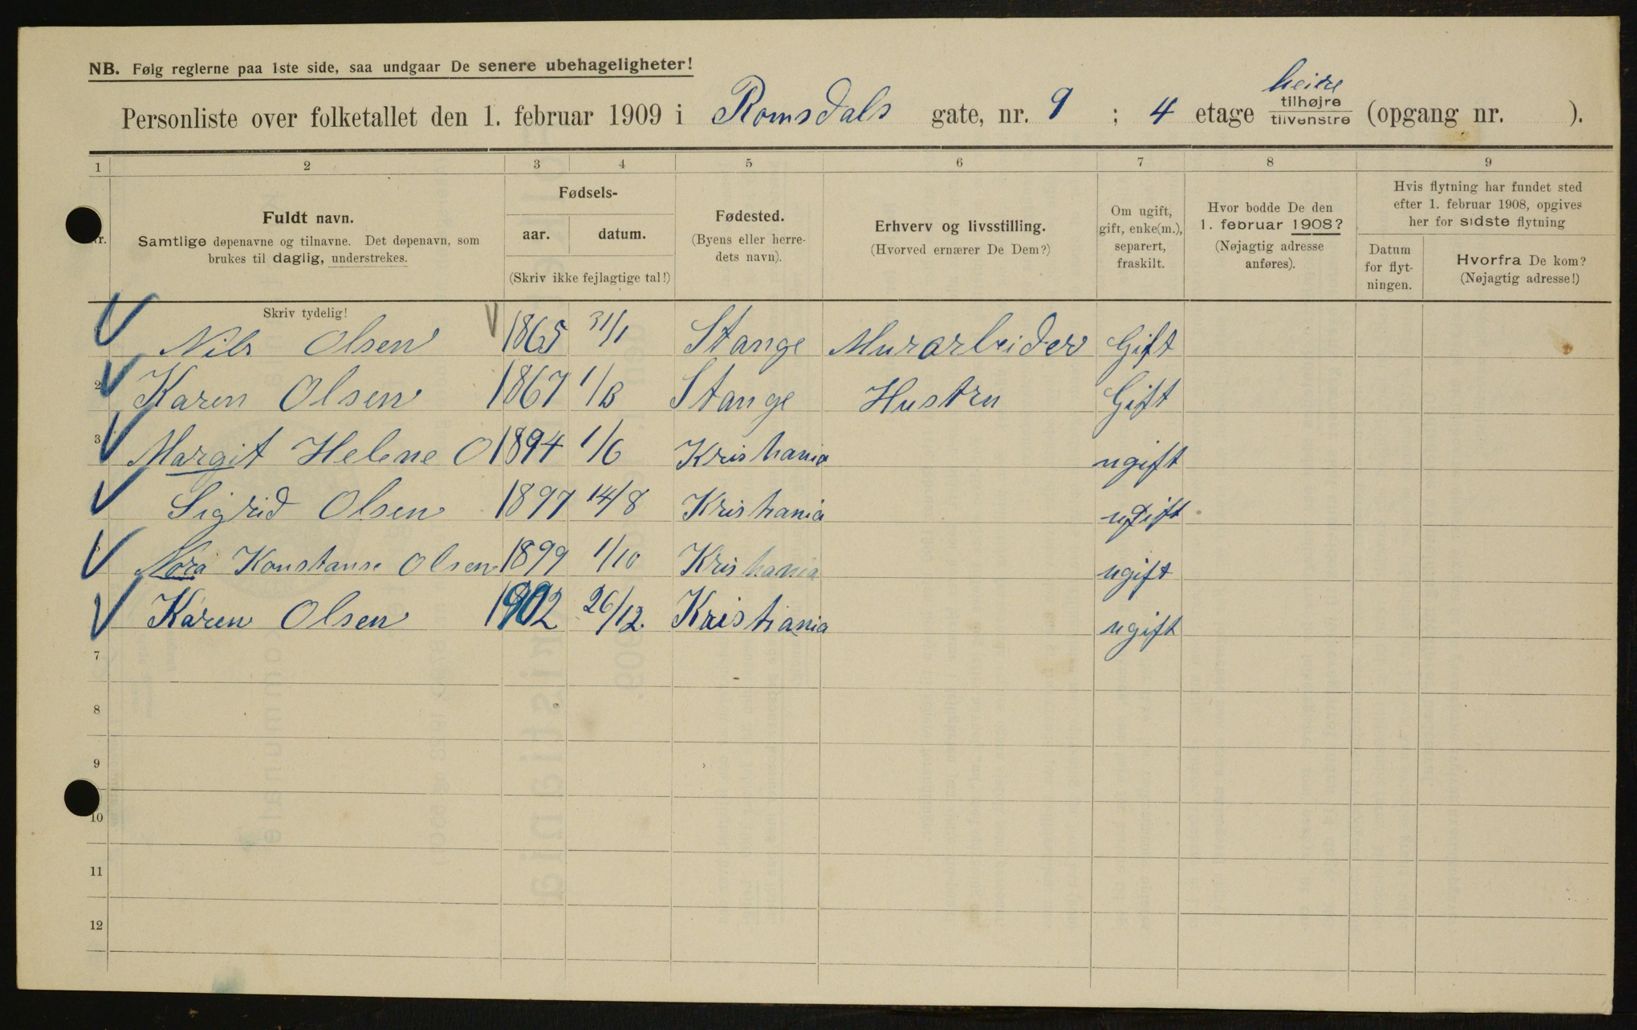 NB. Følg reglerne paa 1ste side, saa undgaar De senere ubehageligheter!
Personliste over folketallet den 1. februar 1909 i Romsdals gate, nr. 9 ; 4 etage tilhøjre tilvenstre (opgang nr. ).
1 2 3 4 5 6 7 8 9
Nr.
Fuldt navn.
Samtlige døpenavne og tilnavne. Det døpenavn, som
brukes til daglig, understrekes.
Skriv tydelig!
Fødsels-
aar. datum.
(Skriv ikke fejlagtige tal!)
Fødested.
(Byens eller herre-
dets navn).
Erhverv og livsstilling.
(Hvorved ernærer De Dem?)
Om ugift,
gift, enke(m.),
separert,
fraskilt.
Hvor bodde De den
1. februar 1908?
(Nøjagtig adresse
anføres).
Hvis flytning har fundet sted
efter 1. februar 1908, opgives
her for sidste flytning
Datum
for flyt-
ningen.
Hvorfra De kom?
(Nøjagtig adresse!)
Nils Olsen 1865 31/1 Stange Murarbeider Gift
2 Karen Olsen 1867 Stange Hustru Gift
3 Margit Helene O 1894 1/6 Kristiania ugift
Sigrid Olsen 1897 14/8 Kristiania ugift
Nora Konstanse Olsen 1899 1/10 Kristiania ugift
Karen Olsen 1902 26/12. Kristiania ugift
7
8
9
10
11
12